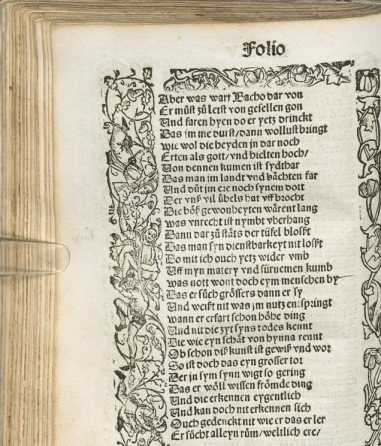 Folio
Aber was wart Bacho dar von
Er můst zů leſt von geſellen gon
Und faren hyen do er yetz drinckt
Das im me durſt / dann wolluſt bringt
Wie wol die heyden jn dar noch
Erten als gott / vnd hielten hoch /
Von dennen kumen iſt ſydthar
Das man im landt vmb bächten far
Und důt jm ere noch ſynem dott
Der vnß vil übels hat vff brocht
Die böß gewonheyten wärent lang
was vnrecht iſt nymbt vberhang
Dann dar zů ſtäts der tüfel bloßt
Das man ſyn dienſtbarkeyt nit loßt
Do mit ich ouch yetz wider vmb
Uff myn matery vnd fürnemen kumb
was nott wont doch eym menſchen by
Das er ſůch gröſſers dann er ſy
Und weißt nit was jm nutz entſpringt
wann er erfart ſchon höhe ding
Und nit die zyt ſyns todes kennt
Die wie eyn ſchät von hynna rennt
Ob ſchon diß kunſt iſt gewiß vnd wor
So iſt doch das eyn groſſer tor
Der in ſym ſynn wigt ſo gering
Das er wöll wiſſen frömde ding
Und die erkennen eygentlich
Und kan doch nit erkennen ſich
Ouch gedenckt nit wie er das er ler
Er ſůcht alleyn rům / weltlich ere /